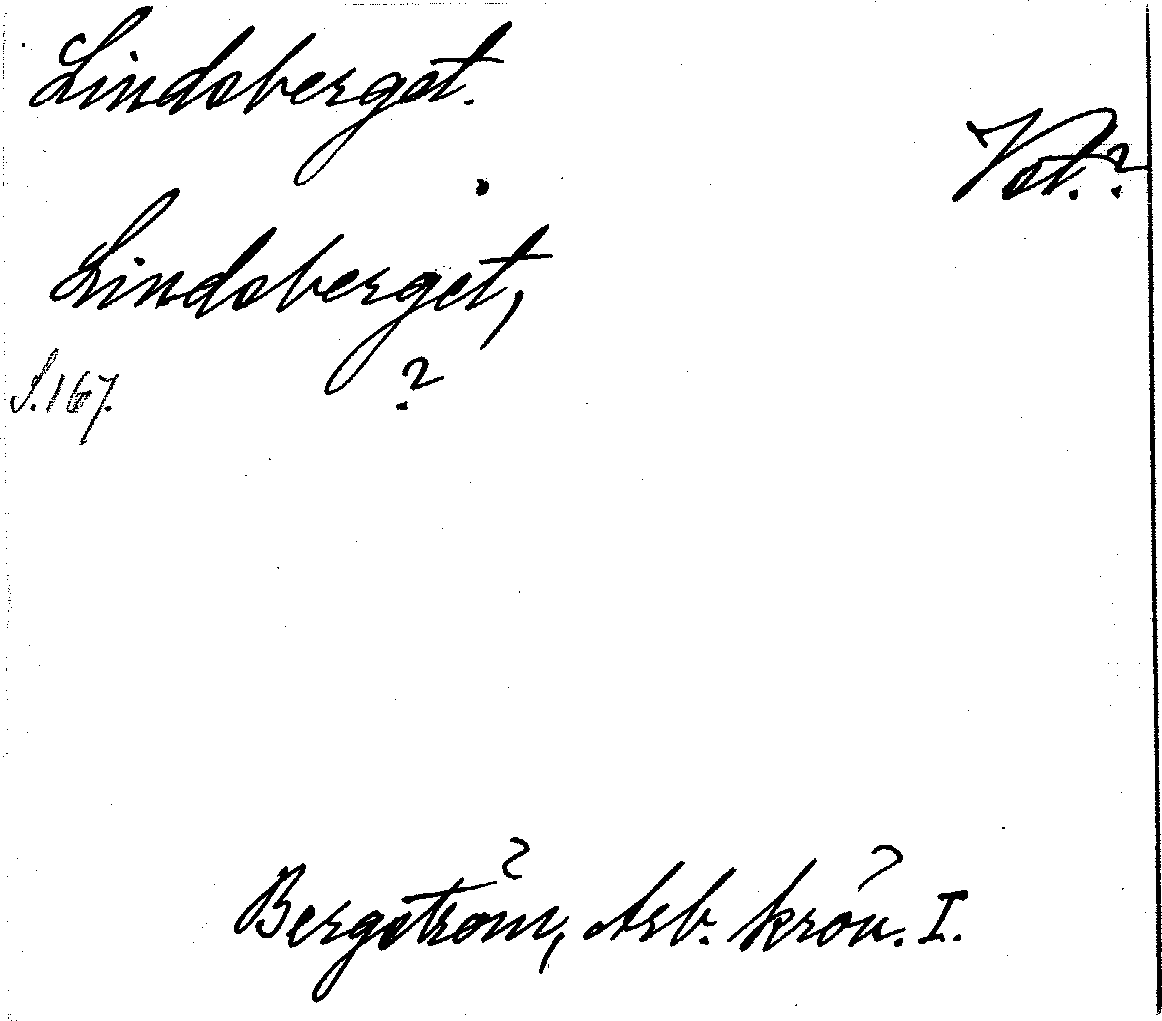 Lindsberget.
Vst.?
Lindsberget,
S.167. ?
Bergström, Arb. krön. I.